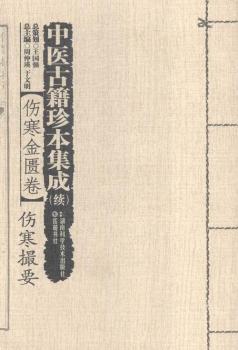 中医古籍珍本集成
(续)
总策划◎王国强
总主编◎周仲瑛 于文明
【伤寒金匮卷】
伤寒撮要
湖南科学技术出版社
岳麓书社